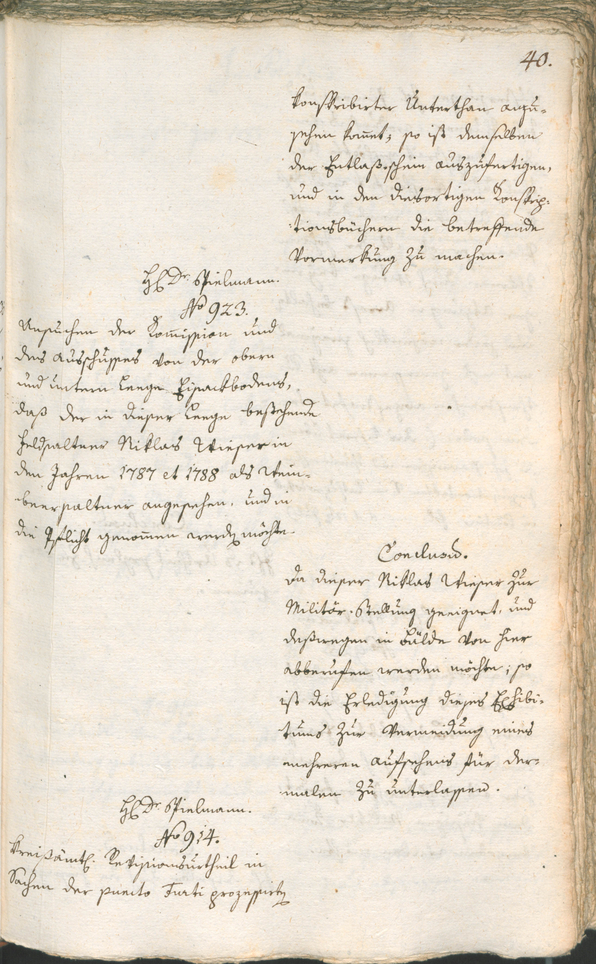 40.
konskribirter Unterthan anzu-
sehen kom̄et; so ist demselben
der Entlaß-schein auszufertigen,
und in den diesortigen Konskrip-
tionsbüchern die betreffende
Vormerkung zu machen.
H: Dr. Spielmann.
No 923.
Ansuchen der Kom̄ission und
des Ausschusses von der obern
und untern Leege Eisackbodens,
daß der in dieser Leege bestehende
Feldsaltner Niklas Wieser in
den Jahren 1787 et 1788 als Wein-
beersaltner angesehen, und in
die Pflicht genom̄en werden möchte.
Conclusum.
Da dieser Niklas Wieser zur
Militär-Stellung geeignet, und
deßwegen in Bälde von hier
abberufen werden möchte; so
ist die Erledigung dieses Exhibi-
tums zur Vermeidung eines
mehreren Aufsehens für der-
malen zu unterlassen.
H: Dr. Spielmann.
No 914.
Kreisämtl. Revisionsurtheil in
Sachen der puncto Furti prozessirten